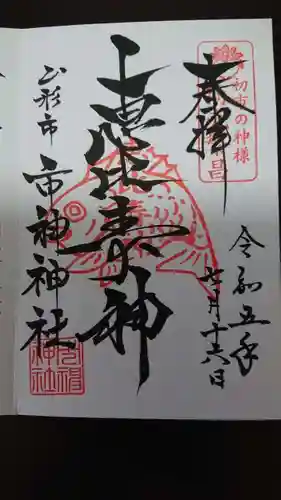 初市の神様
奉拝
令和五年
月十六日
上恵比寿神
山形市
市神神社